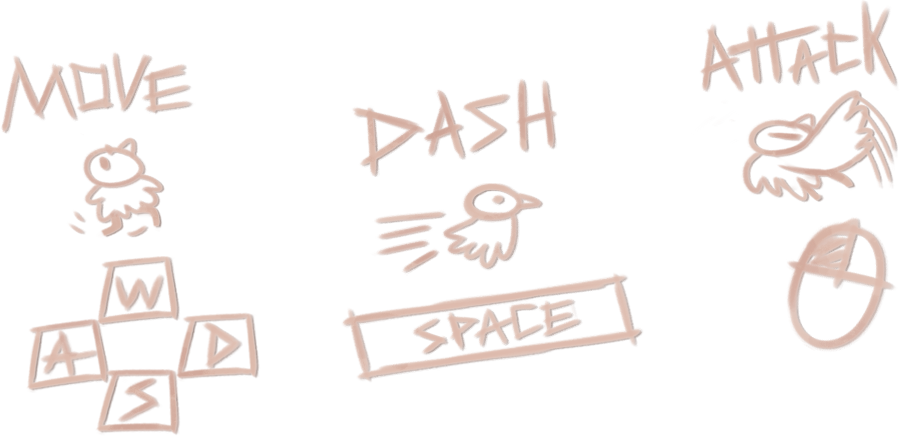 MOVE
W
A D
S
DASH
SPACE
ATTACK